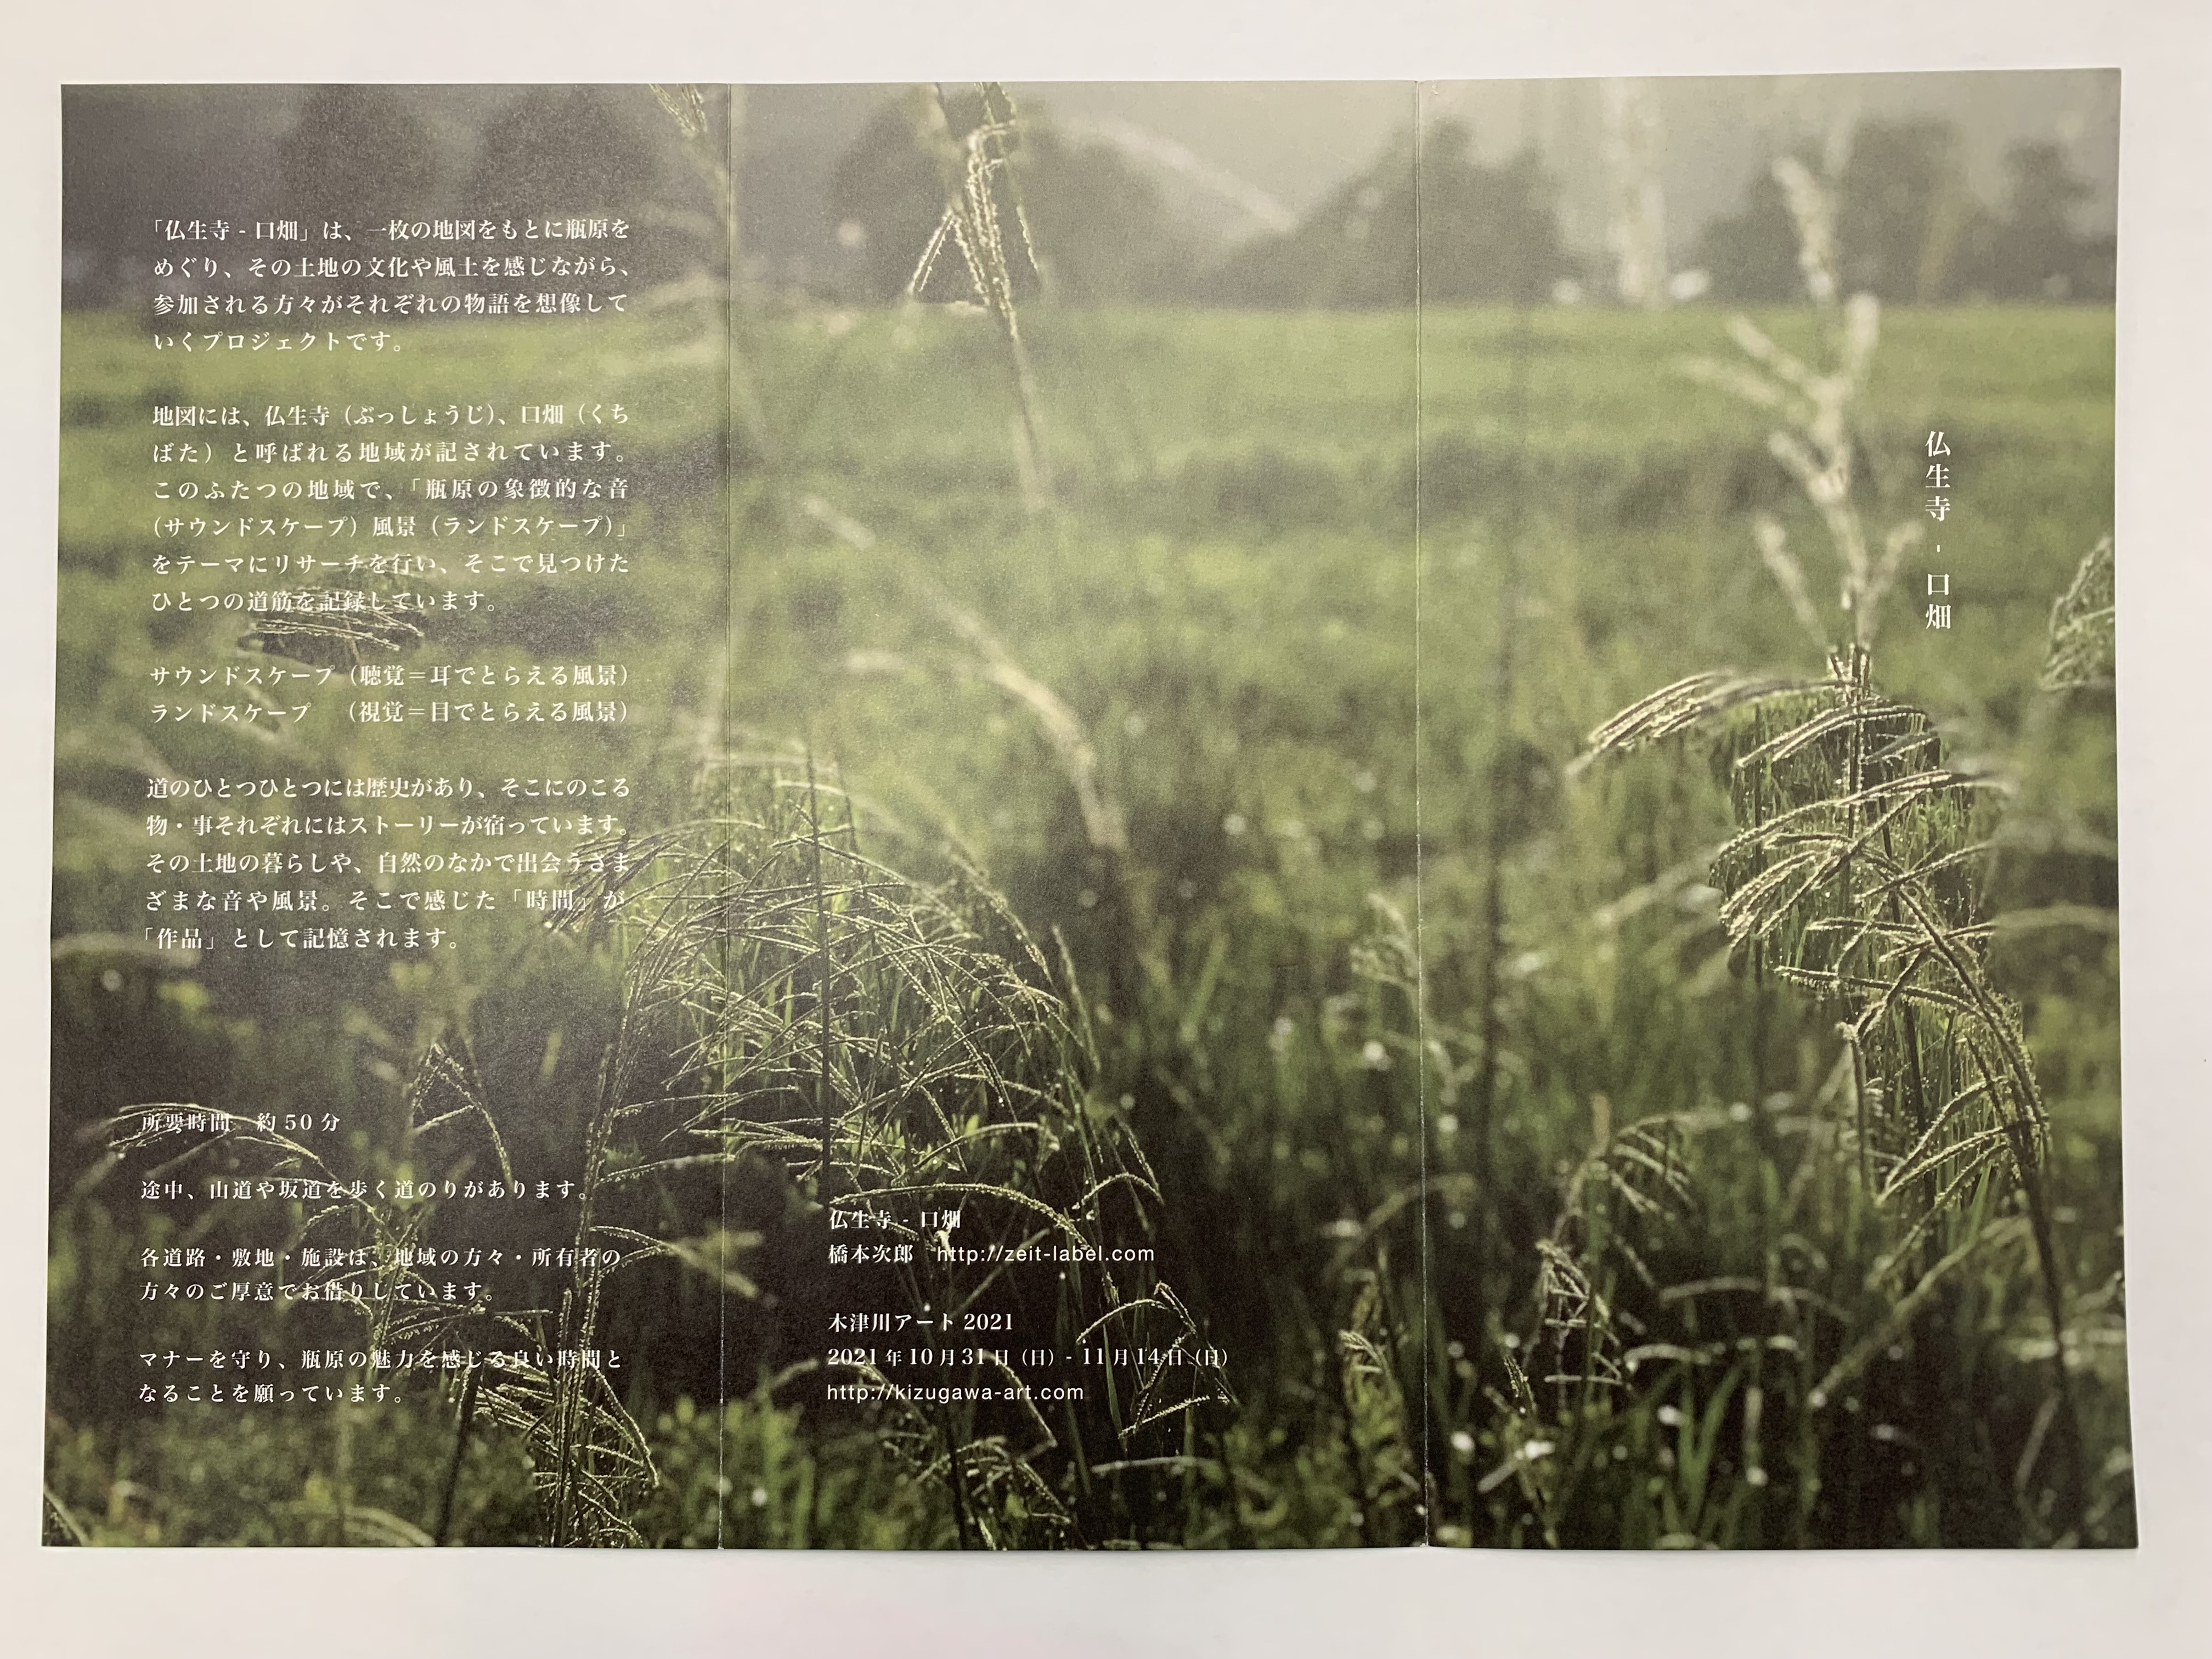 「仏生寺 - 口畑」は、一枚の地図をもとに瓶原を
めぐり、その土地の文化や風土を感じながら、
参加される方々がそれぞれの物語を想像して
いくプロジェクトです。
地図には、仏生寺（ぶっしょうじ）、口畑（くち
ばた）と呼ばれる地域が記されています。
このふたつの地域で、「瓶原の象徴的な音
（サウンドスケープ）風景（ランドスケープ）」
をテーマにリサーチを行い、そこで見つけた
ひとつの道筋を記録しています。
サウンドスケープ（聴覚＝耳でとらえる風景）
ランドスケープ　（視覚＝目でとらえる風景）
道のひとつひとつには歴史があり、そこにのこる
物・事それぞれにはストーリーが宿っています。
その土地の暮らしや、自然のなかで出会うさま
ざまな音や風景。そこで感じた「時間」が
「作品」として記憶されます。
所要時間　約 50 分
途中、山道や坂道を歩く道のりがあります。
各道路・敷地・施設は、地域の方々・所有者の
方々のご厚意でお借りしています。
マナーを守り、瓶原の魅力を感じる良い時間と
なることを願っています。
仏生寺 - 口畑
橋本次郎　http://zeit-label.com
木津川アート 2021
2021 年 10 月 31 日（日）- 11 月 14 日（日）
http://kizugawa-art.com
仏生寺 - 口畑